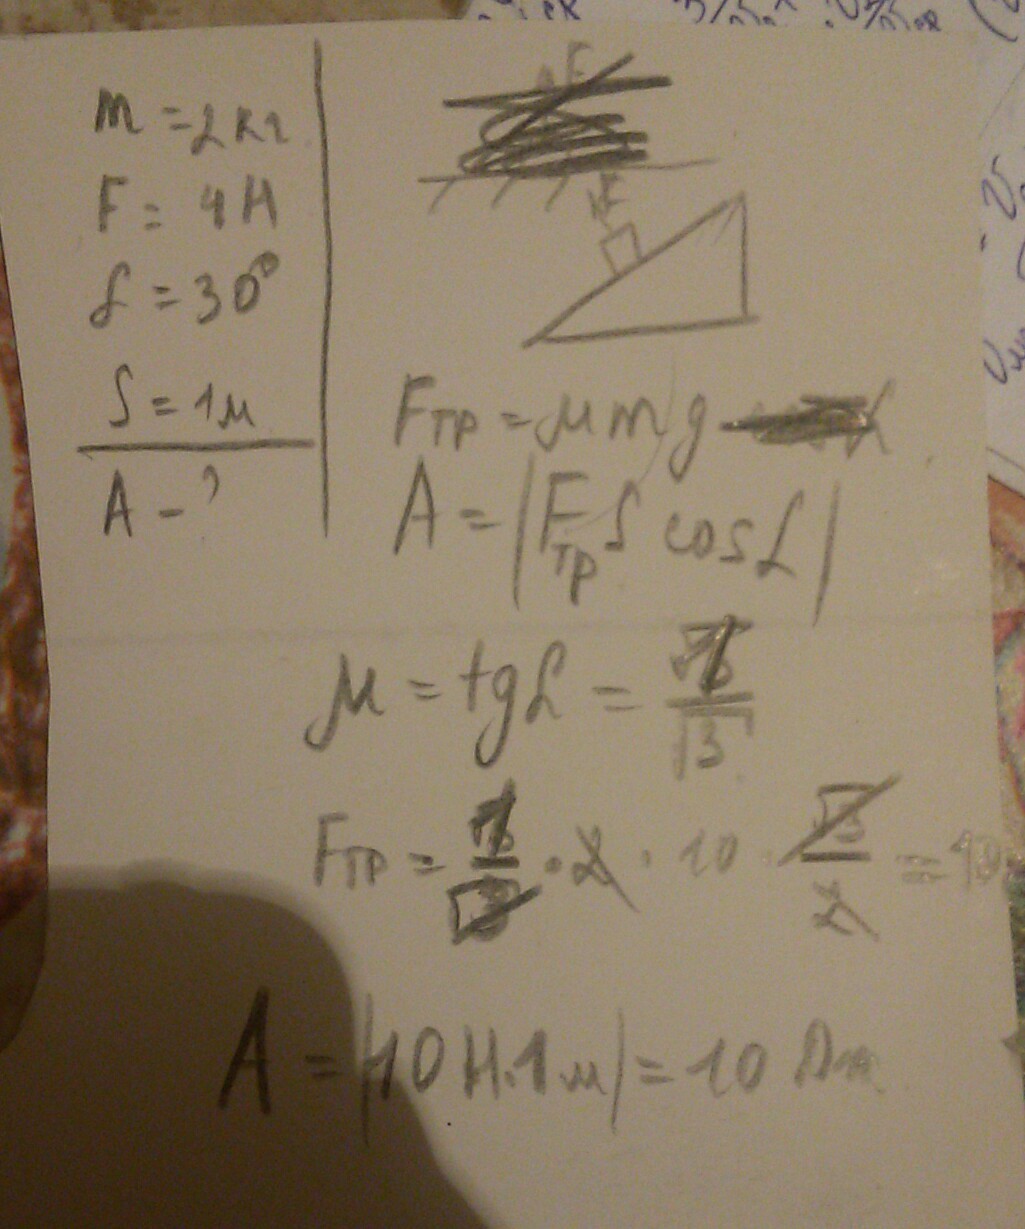 m = 2 кг
F = 4 Н
α = 30°
S = 1 м
A - ?
F
Fтр = μmg
A = |Fтр S cos α|
μ = tg α = 1/√3
Fтр = 1/√3 · 2 · 10 · √3/2 = 10
A = |10 Н·1 м| = 10 Дж